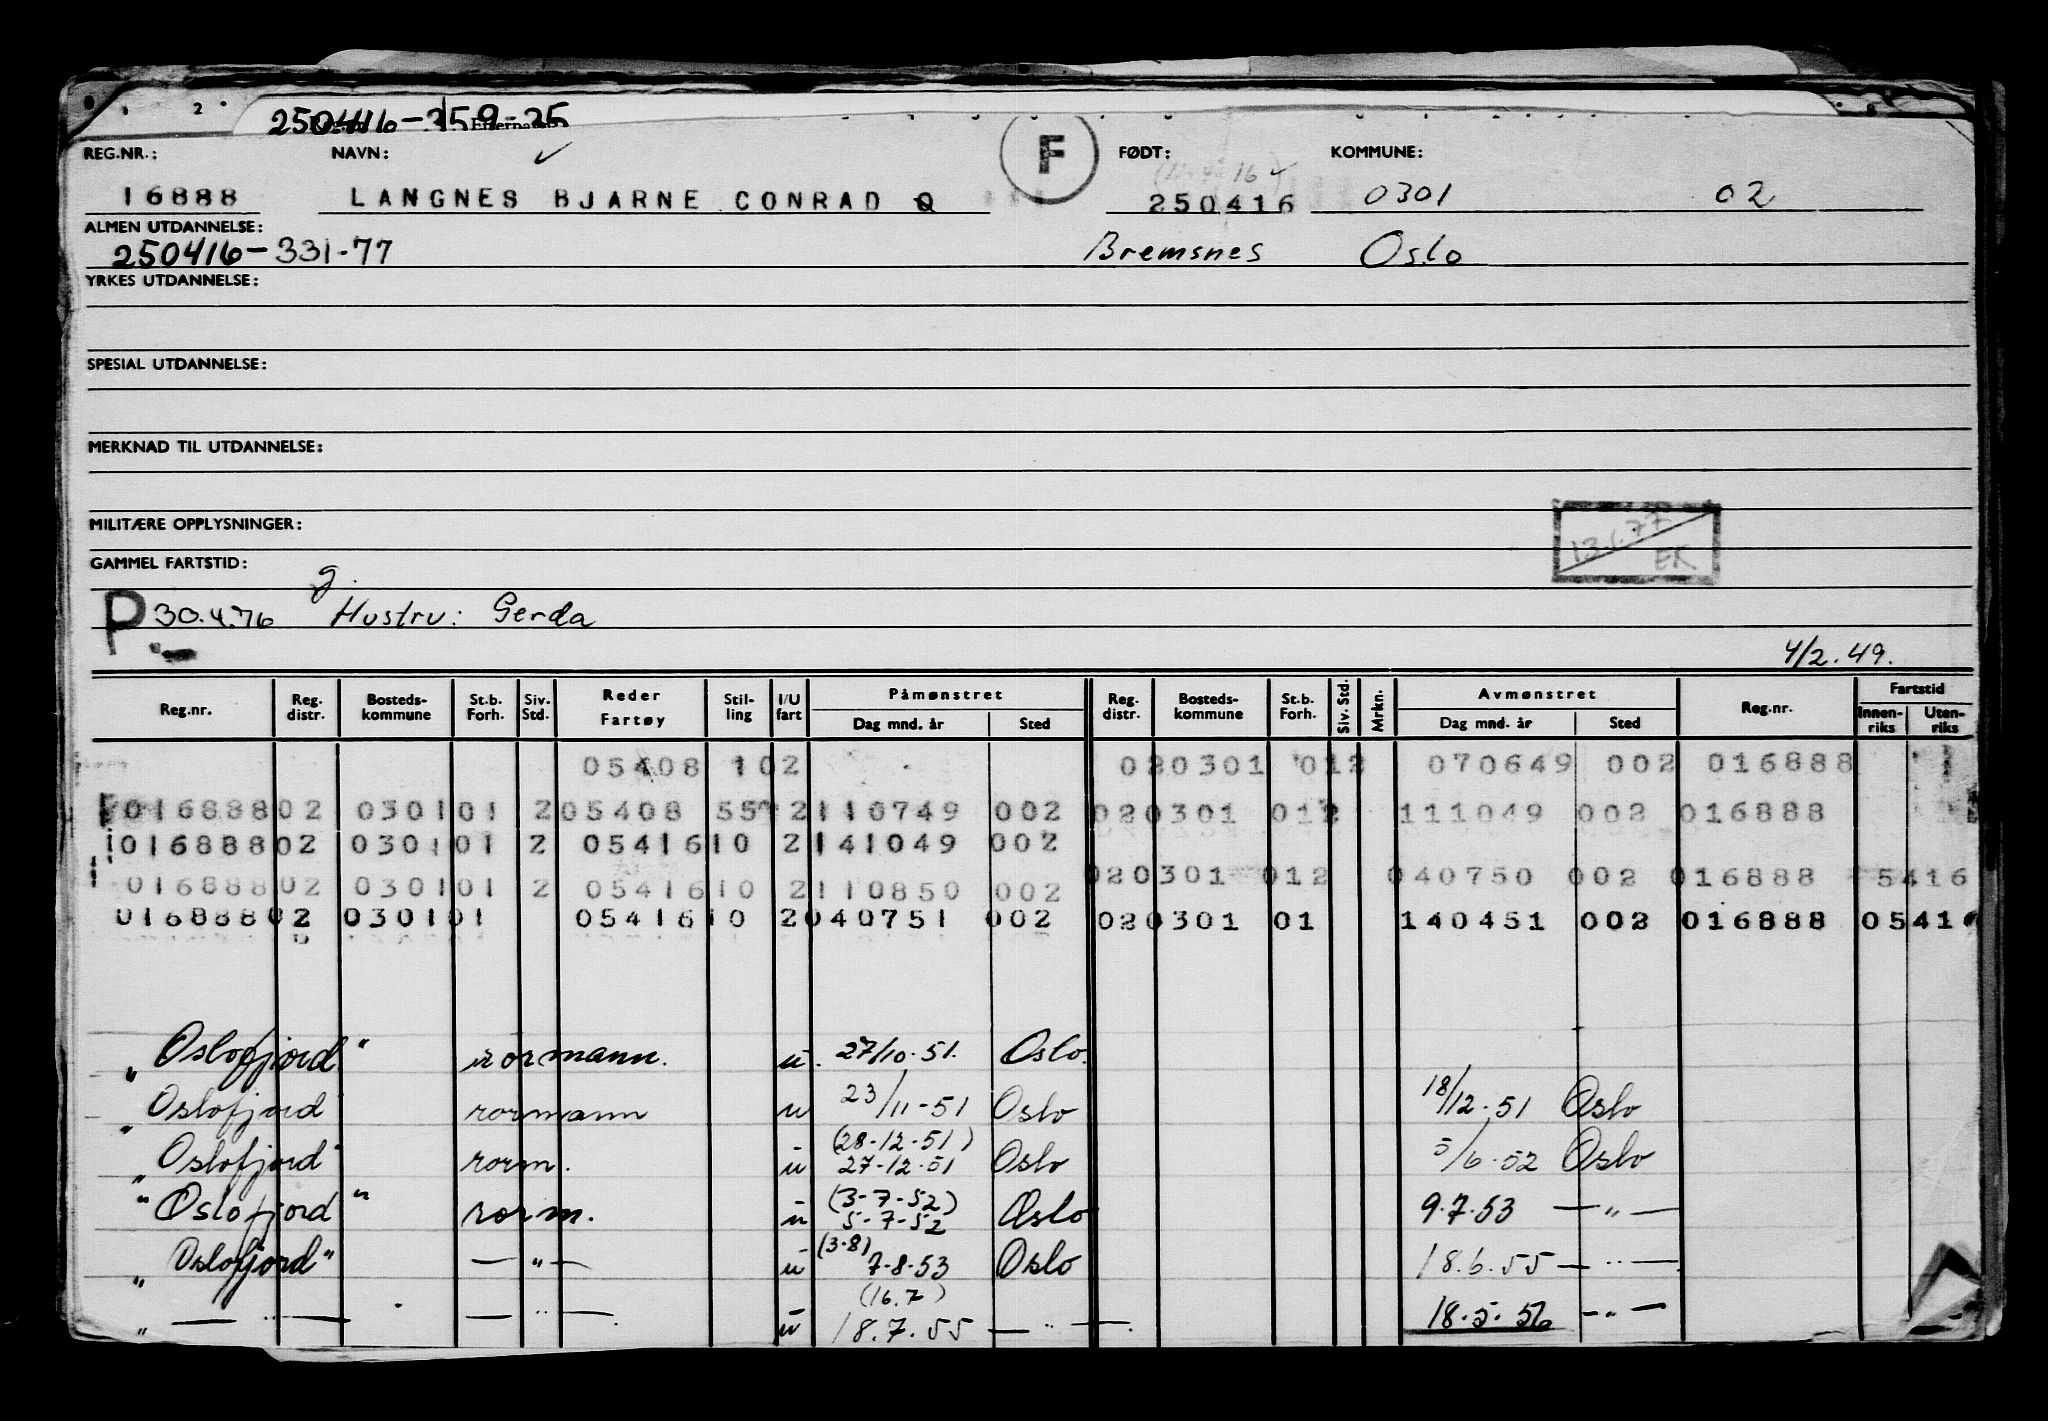 250416-359-35
REG.NR.: NAVN: F FØDT: KOMMUNE:
16888 LANGNES BJARNE CONRAD Q 250416 0301 02
ALMEN UTDANNELSE:
250416-331-77 Bremsnes Oslo
YRKES UTDANNELSE:
SPESIAL UTDANNELSE:
MERKNAD TIL UTDANNELSE:
MILITÆRE OPPLYSNINGER:
13.1.77
EK
GAMMEL FARTSTID:
g.
P 30.4.76 Hustru: Gerda
4/2.49.
Reg.nr. Reg. distr. Bosteds- kommune St.b. Forh. Siv. Std. Reder Fartøy Stil- ling I/U fart Påmønstret Dag mnd. år Sted Reg. distr. Bosteds- kommune St.b. Forh. Siv. Std. Mrkn. Avmønstret Dag mnd. år Sted Reg.nr. Fartstid Innen- riks Uten- riks
05408 102 020301 012 070649 002 016888
01688802 030101 205408 55 2110749 002 020301 012 111049 002 016888
01688802 030101 2 0541610 2141049 002
01688802 030101 2 0541610 2110850 002 020301 012 040750 002 016888 5416
01688802 030101 0541610 2040751 002 020301 01 140451 002 016888 0541
„Oslofjord" rormann. u. 27/10.51. Oslo.
„Oslofjord rormann u 23/11-51 Oslo 18/12.51 Oslo
(28-12-51)
„Oslofjord" rorm. u 27-12.51 Oslo 5/6.52 Oslo
(3-7-52)
"Oslofjord" rorm. u 5-7-52 Oslo 9.7.53 —"—
(3.8)
„Oslofjord" —"— u 7.8.53 Oslo 18.6.55 —"—
(16.7)
„ —"— —"— u 18.7.55 —"— 18.5.56 —"—